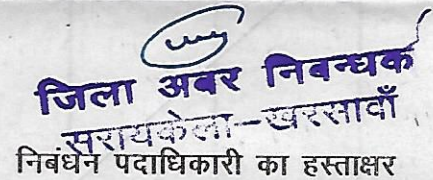 जिला अबर निबन्धक
सरायकेला-खरसावाँ
निबंधन पदाधिकारी का हस्ताक्षर